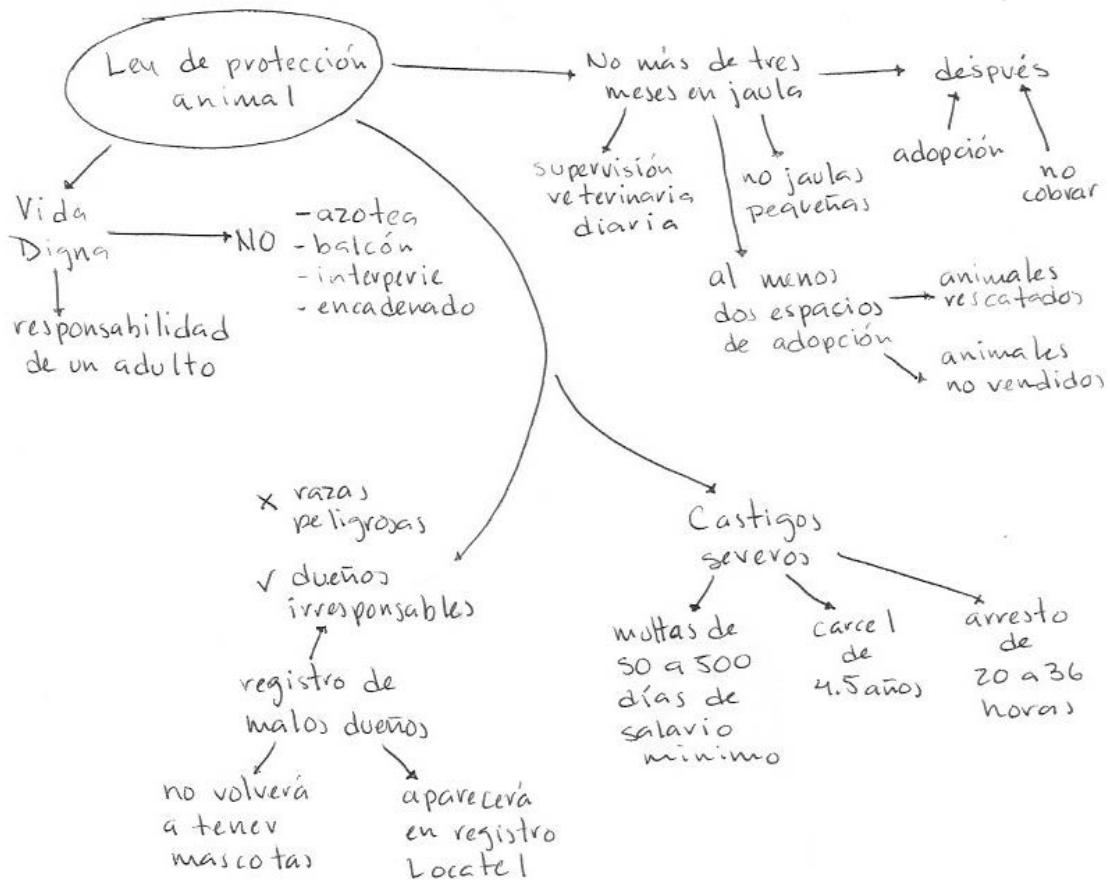 Ley de protección
animal
No más de tres
meses en jaula
después
adopción
no
cobrar
supervisión
veterinaria
diaria
no jaulas
pequeñas
al menos
dos espacios
de adopción
animales
rescatados
animales
no vendidos
Vida
Digna
NO
-azotea
-balcón
-interperie
-encadenado
responsabilidad
de un adulto
x razas
peligrosas
✓ dueños
irresponsables
registro de
malos dueños
no volverá
a tener
mascotas
aparecerá
en registro
Locatel
Castigos
severos
multas de
50 a 500
días de
salario
minimo
carcel
de
4.5 años
arresto
de
20 a 36
horas